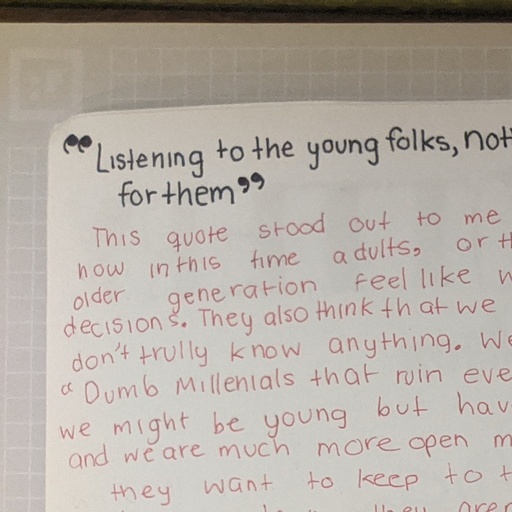 “Listening to the young folks, not
for them”
This quote stood out to me
how in this time adults, or
older generation feel like
decisions. They also think that we
don't trully know anything.
“Dumb Millenials that ruin
we might be young but
and we are much more open
they want to keep to